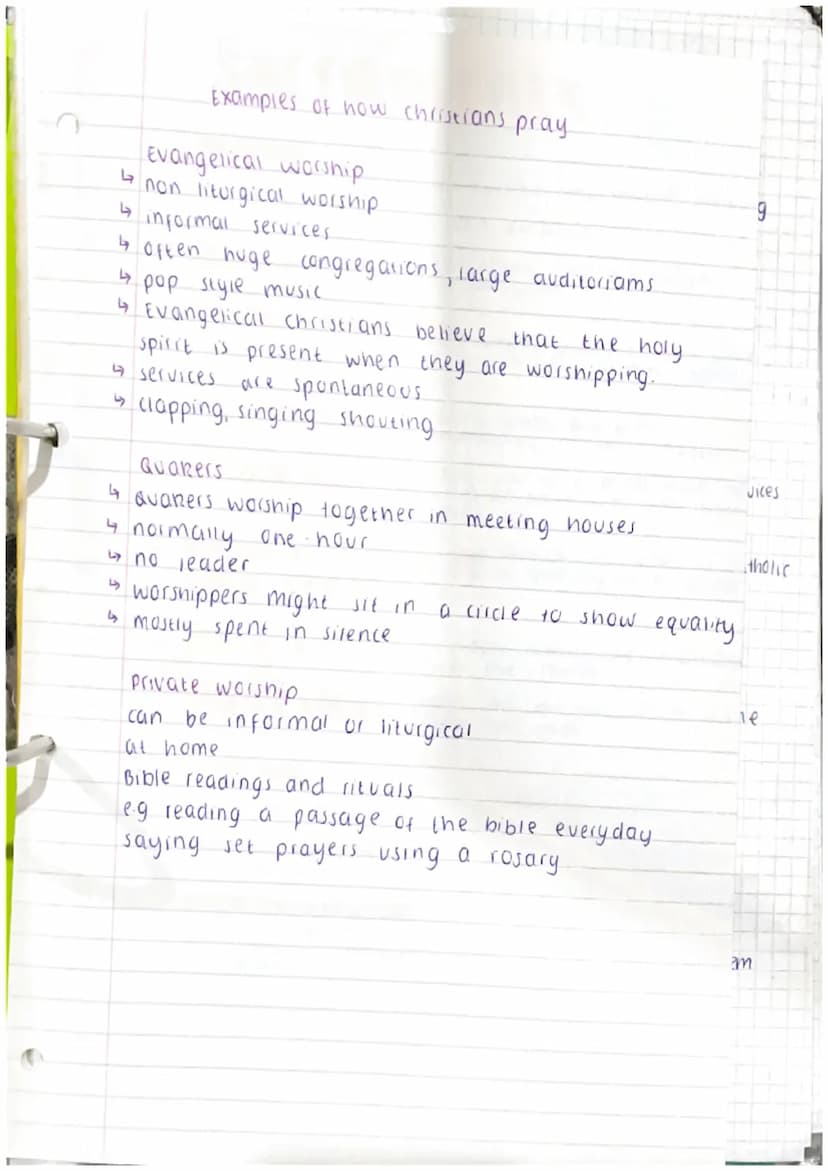 Examples of how christians pray
Evangelical worship
↳ non liturgical worship
↳ informal services
↳ often huge congregations, large auditoriams
↳ pop style music
↳ Evangelical christians believe that the holy
spirit is present when they are worshipping.
↳ services are spontaneous
↳ clapping, singing shouting
Quakers
↳ Quakers worship together in meeting houses
↳ normally one hour
↳ no leader
↳ worshippers might sit in a circle to show equality
↳ mostly spent in silence
Private worship
can be informal or liturgical
at home
Bible readings and rituals
e.g reading a passage of the bible everyday
saying set prayers using a rosary
g
vices
tholic
em